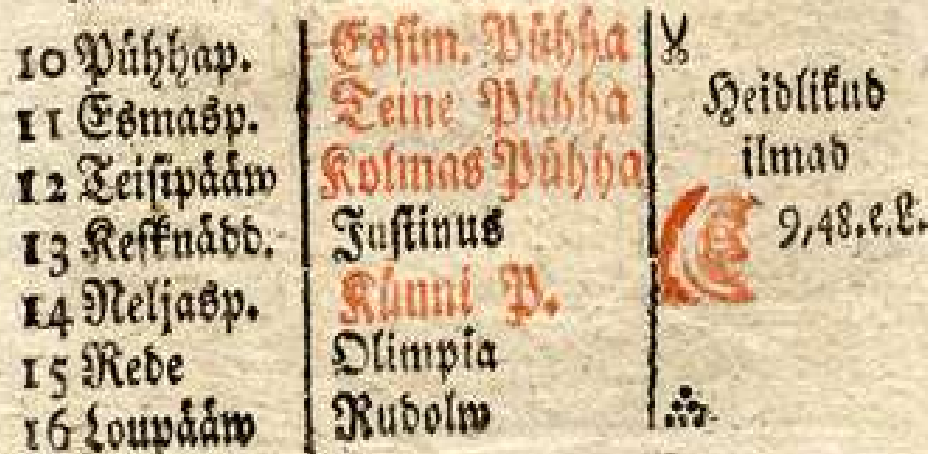 10 Pühhap. Essim. Pühha
11 Esmasp. Teine Pühha Heidlikud
12 Teisipääw Kolmas Pühha ilmad
13 Kesknädd. Justinus 9,48.e.L.
14 Neljasp. Künni P.
15 Rede Olimpia
16 Loupääw Rudolw